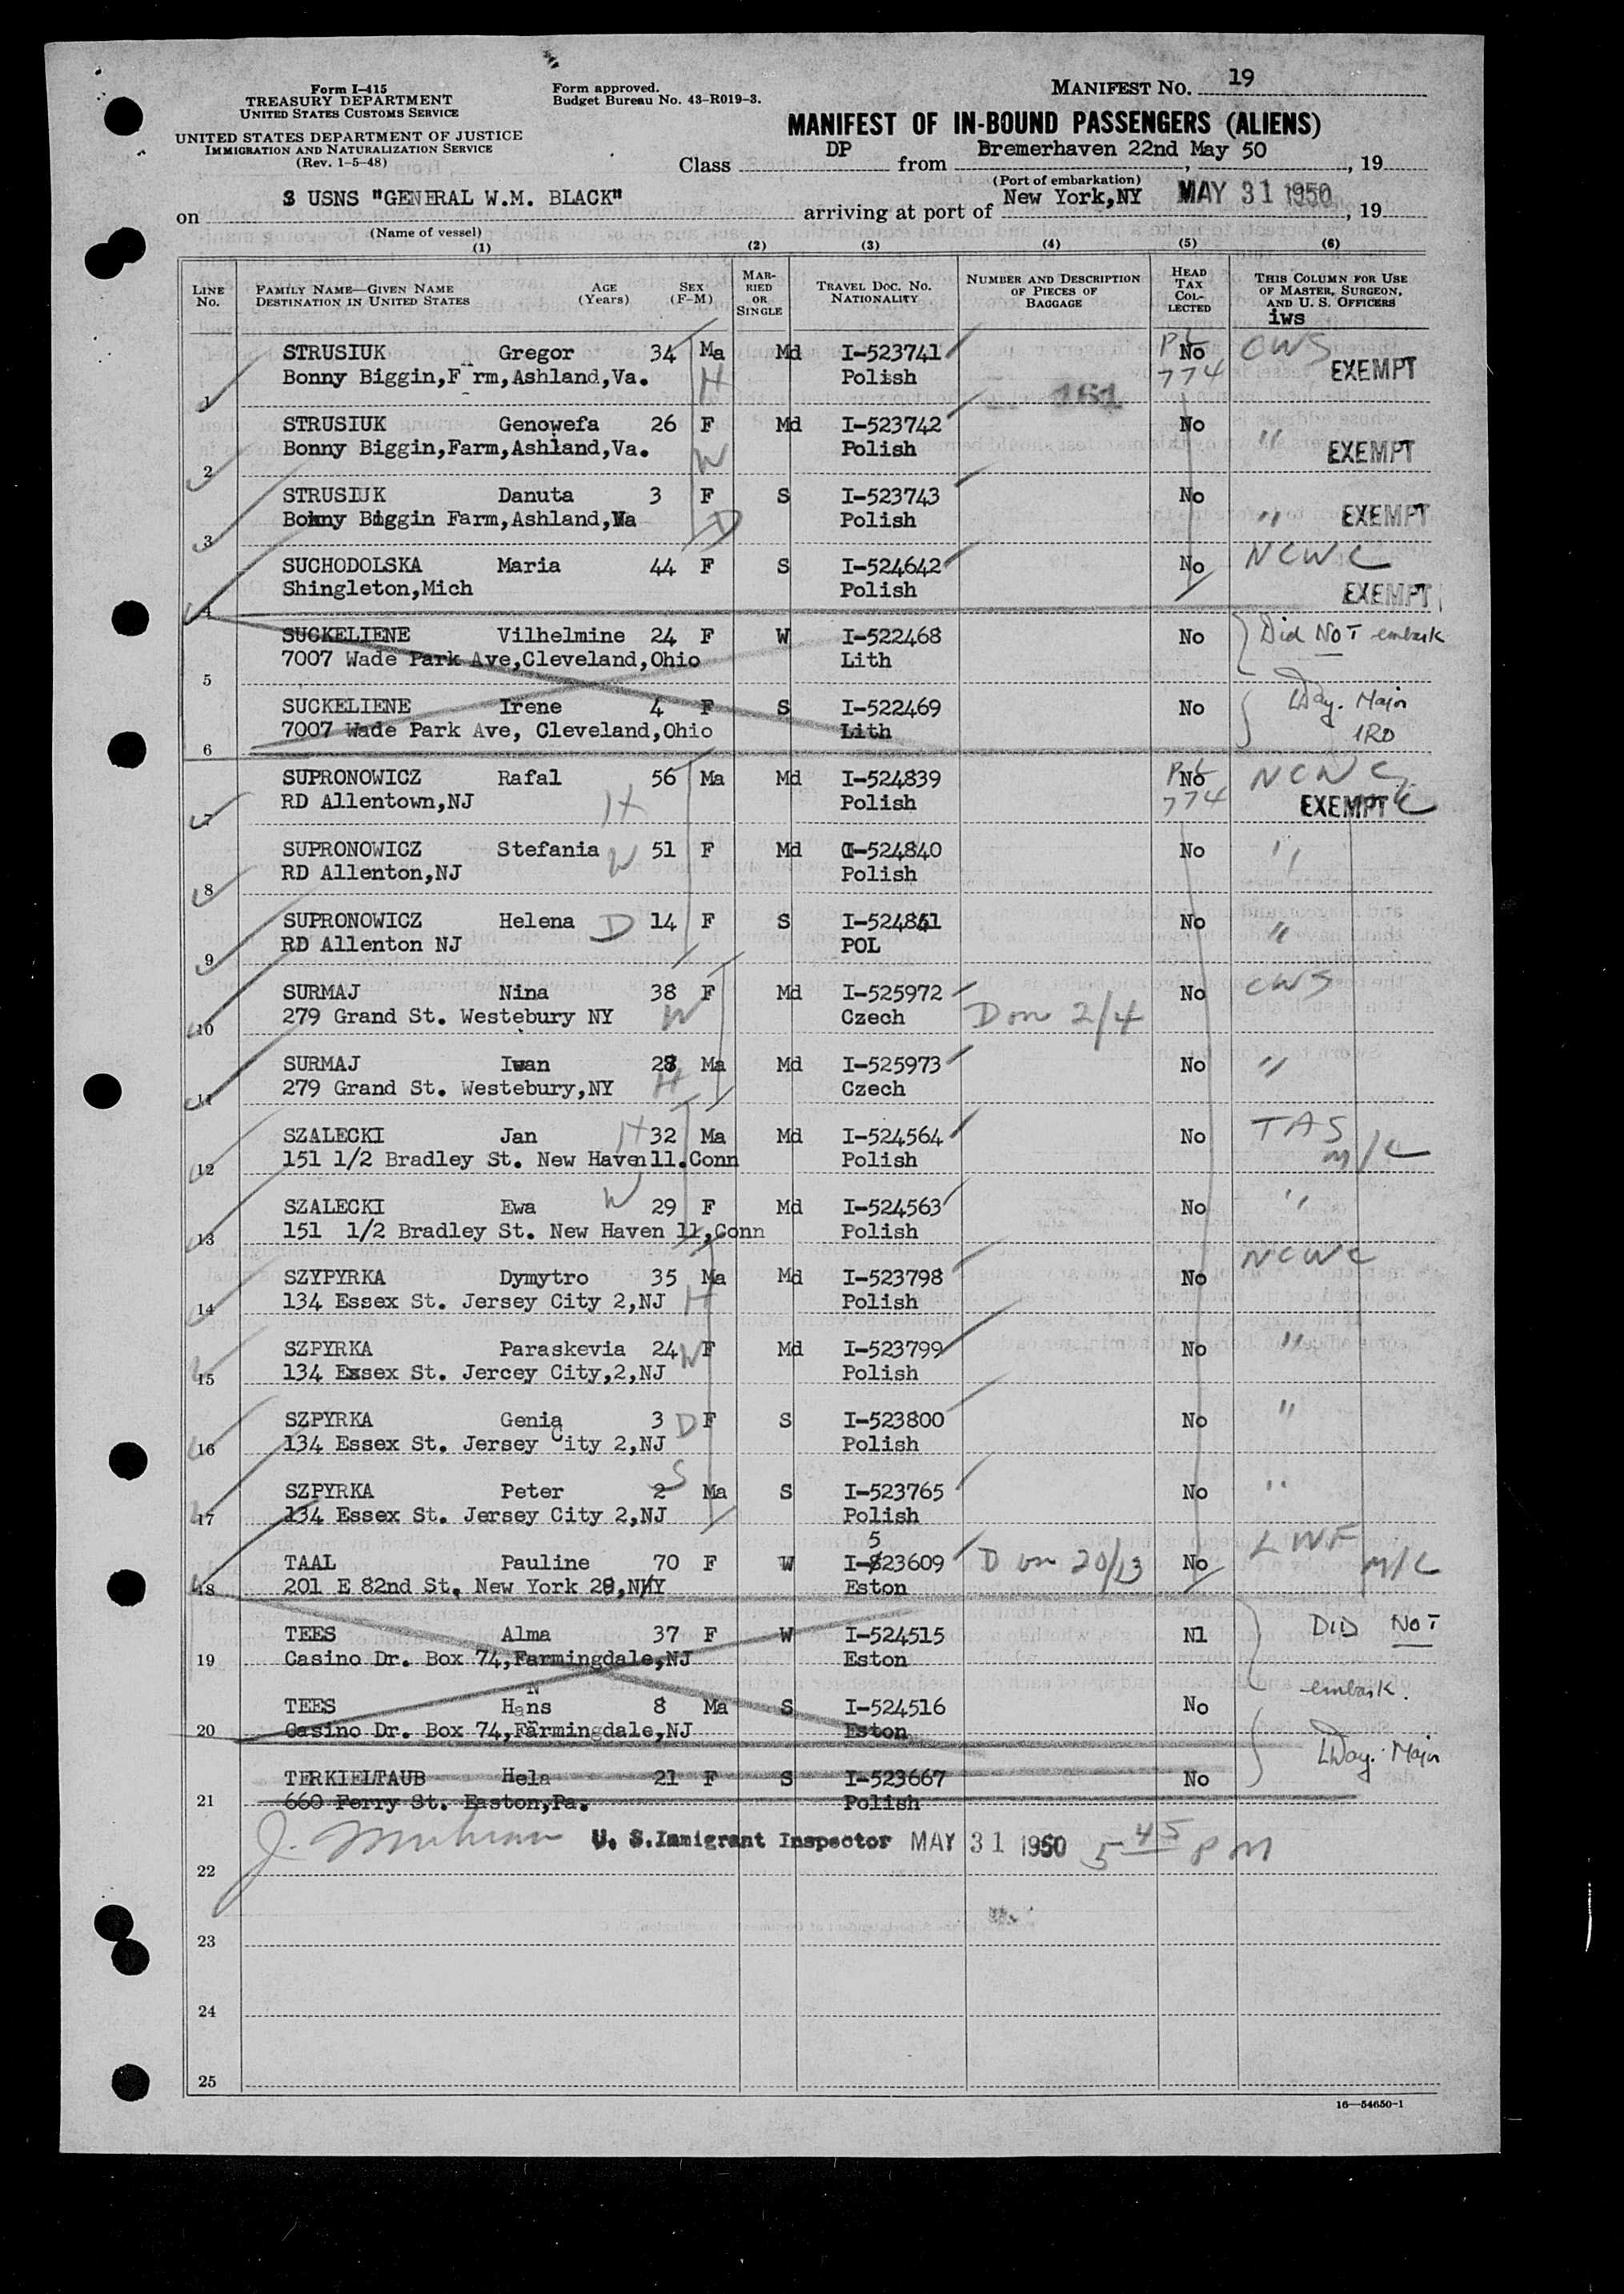 Form I-415
TREASURY DEPARTMENT
UNITED STATES CUSTOMS SERVICE
UNITED STATES DEPARTMENT OF JUSTICE
IMMIGRATION AND NATURALIZATION SERVICE
(Rev. 1-5-48)
Form approved.
Budget Bureau No. 43-R019-3.
MANIFEST NO. 19
MANIFEST OF IN-BOUND PASSENGERS (ALIENS)
Class DP from Bremerhaven 22nd May 50, 19
(Port of embarkation)
on USNS "GENERAL W.M. BLACK" arriving at port of New York,NY MAY 31 1950, 19
(Name of vessel)
(1) (2) (3) (4) (5) (6)
LINE No. FAMILY NAME—GIVEN NAME DESTINATION IN UNITED STATES AGE (Years) SEX (F-M) MARRIED OR SINGLE TRAVEL DOC. NO. NATIONALITY NUMBER AND DESCRIPTION OF PIECES OF BAGGAGE HEAD TAX COLLECTED THIS COLUMN FOR USE OF MASTER, SURGEON, AND U. S. OFFICERS
iws
STRUSIUK Gregor 34 Ma Md I-523741 No CWS
1 Bonny Biggin,F rm,Ashland,Va. H Polish 774 EXEMPT
161
STRUSIUK Genowefa 26 F Md I-523742 No "
2 Bonny Biggin,Farm,Ashland,Va. W Polish EXEMPT
STRUSIUK Danuta 3 F S I-523743 No
3 Bonny Biggin Farm,Ashland,Va D Polish " EXEMPT
SUCHODOLSKA Maria 44 F S I-524642 No NCWC
4 Shingleton,Mich Polish EXEMPT
SUCKELIENE Vilhelmine 24 F W I-522468 No Did NOT embark
5 7007 Wade Park Ave,Cleveland,Ohio Lith
SUCKELIENE Irene 4 F S I-522469 No LDay. Major
6 7007 Wade Park Ave, Cleveland,Ohio Lith IRO
SUPRONOWICZ Rafal 56 Ma Md I-524839 No NCWC
7 RD Allentown,NJ H Polish 774 EXEMPT
SUPRONOWICZ Stefania W 51 F Md I-524840 No "
8 RD Allenton,NJ Polish
SUPRONOWICZ Helena D 14 F S I-524841 No "
9 RD Allenton NJ POL
SURMAJ Nina 38 F Md I-525972 No CWS
10 279 Grand St. Westebury NY W Czech D on 2/4
SURMAJ Iwan 28 Ma Md I-525973 No "
11 279 Grand St. Westebury,NY H Czech
SZALECKI Jan H 32 Ma Md I-524564 No TAS
12 151 1/2 Bradley St. New Haven11.Conn Polish M/C
SZALECKI Ewa W 29 F Md I-524563 No "
13 151 1/2 Bradley St. New Haven 11,Conn Polish
SZYPYRKA Dymytro 35 Ma Md I-523798 No NCWC
14 134 Essex St. Jersey City 2,NJ H Polish
SZPYRKA Paraskevia 24 W F Md I-523799 No "
15 134 Essex St. Jercey City,2,NJ Polish
SZPYRKA Genia 3 D F S I-523800 No "
16 134 Essex St. Jersey City 2,NJ Polish
SZPYRKA Peter 2 S Ma S I-523765 No "
17 134 Essex St. Jersey City 2,NJ Polish
5
TAAL Pauline 70 F W I-823609 D on 20/13 No LWF
18 201 E 82nd St, New York 28,NY Eston M/C
TEES Alma 37 F W I-524515 Nl DID NOT
19 Casino Dr. Box 74,Farmingdale,NJ Eston
embark.
TEES Hans 8 Ma S I-524516 No
20 Casino Dr. Box 74,Farmingdale,NJ Eston
LDay. Major
TERKIELTAUB Hela 21 F S I-523667 No
21 660 Ferry St. Easton,Pa. Polish
U. S.Immigrant Inspector MAY 31 1950 5 45 PM
22
23
24
25
16—54650-1